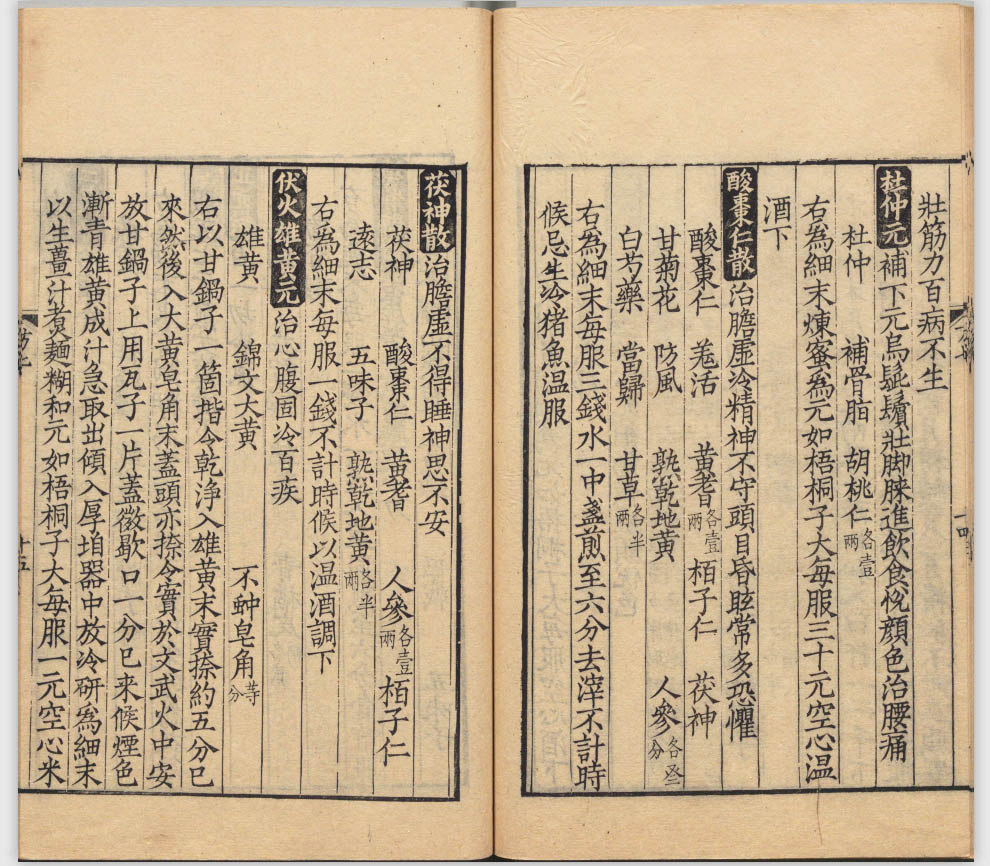 壯筋力百病不生
杜仲元補下元烏髭鬚壯脚膝進飲食悅顔色治腰痛
杜仲 補骨脂 胡桃仁各壹兩
右為細末煉蜜為元如梧桐子大每服三十元空心温
酒下
酸棗仁散治膽虛冷精神不守頭目昏眩常多恐懼
酸棗仁 羗活 黄耆各壹兩 栢子仁 茯神
甘菊花 防風 熟乾地黄 人參各叁分
白芍藥 當歸 甘草各半兩
右為細末每服三錢水一中盞煎至六分去滓不計時
候忌生冷猪魚温服
茯神散治膽虛不得睡神思不安
茯神 酸棗仁 黄耆 人參各壹兩 栢子仁
遠志 五味子 熟乾地黄各半兩
右為細末每服一錢不計時候以温酒調下
伏火雄黄元治心腹固冷百疾
雄黄 錦文大黄 不蚛皂角等分
右以甘鍋子一箇揩令乾浄入雄黄末實捺約五分已
來然後入大黄皂角末蓋頭亦捺令實於文武火中安
放甘鍋子上用瓦子一片蓋微歇口一分已来候煙色
漸青雄黄成汁急取出傾入厚垍器中放冷研為細末
以生薑汁煮麵糊和元如梧桐子大每服一元空心米
十五